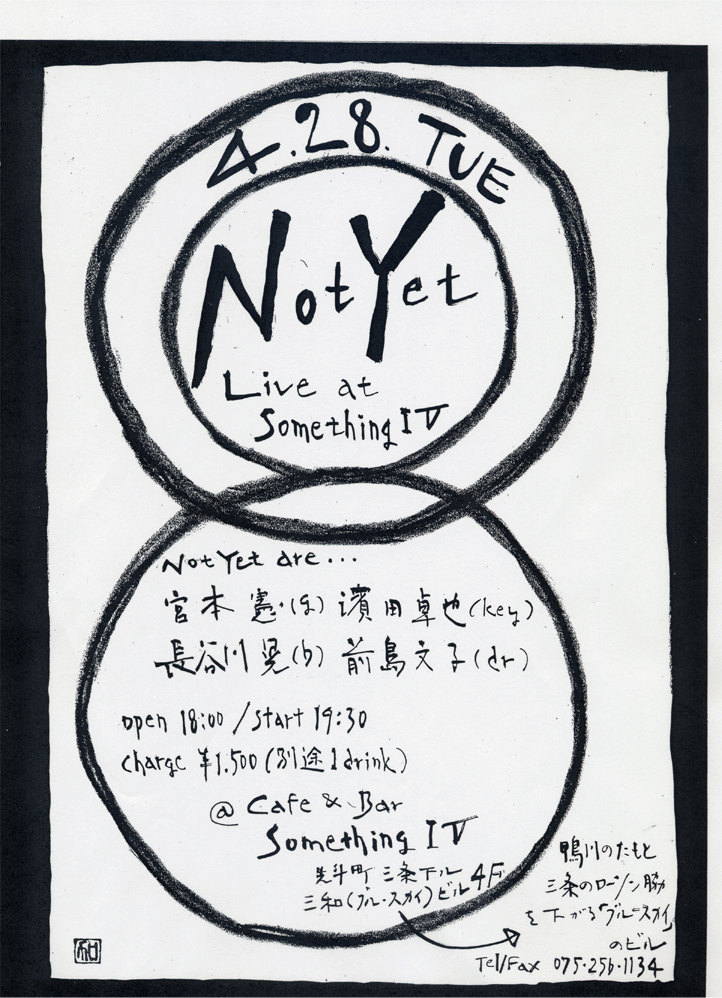 4.28. TUE
Not Yet
Live at
Something IV
Not Yet are...
宮本 憲(g) 濱田卓也(key)
長谷川 晃(b) 前島文子(dr)
open 18:00 / start 19:30
charge ¥1.500 (別途1drink)
@ Cafe & Bar
Something IV
先斗町 三条下ル
三和(ブルースカイ)ビル4F
鴨川のたもと
三条のローソン脇
を下がる「ブルースカイ」
のビル
Tel/Fax 075・256・1134
和